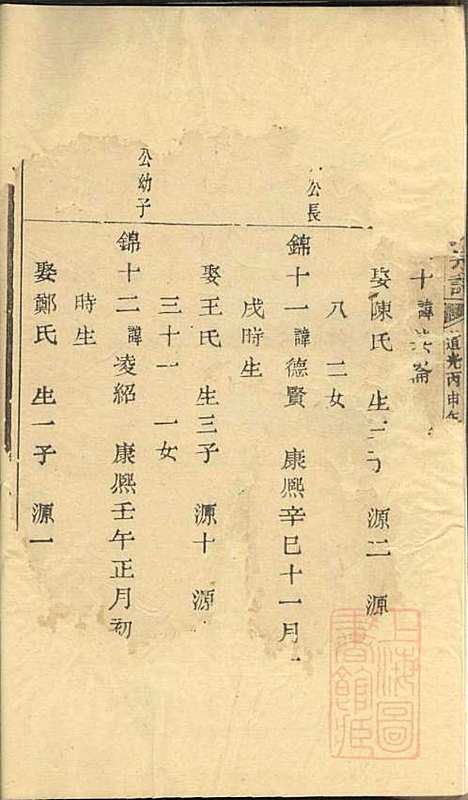 宗譜 道光丙申年
十 諱 崙
娶陳氏 生三子 源二 源
八 二女
公長
錦十一 諱德賢 康熙辛巳十一月
戌時生
娶王氏 生三子 源十 源
三十一 一女
公幼子
錦十二 諱凌紹 康熙壬午正月初
時生
娶鄭氏 生一子 源一
上海圖書館藏